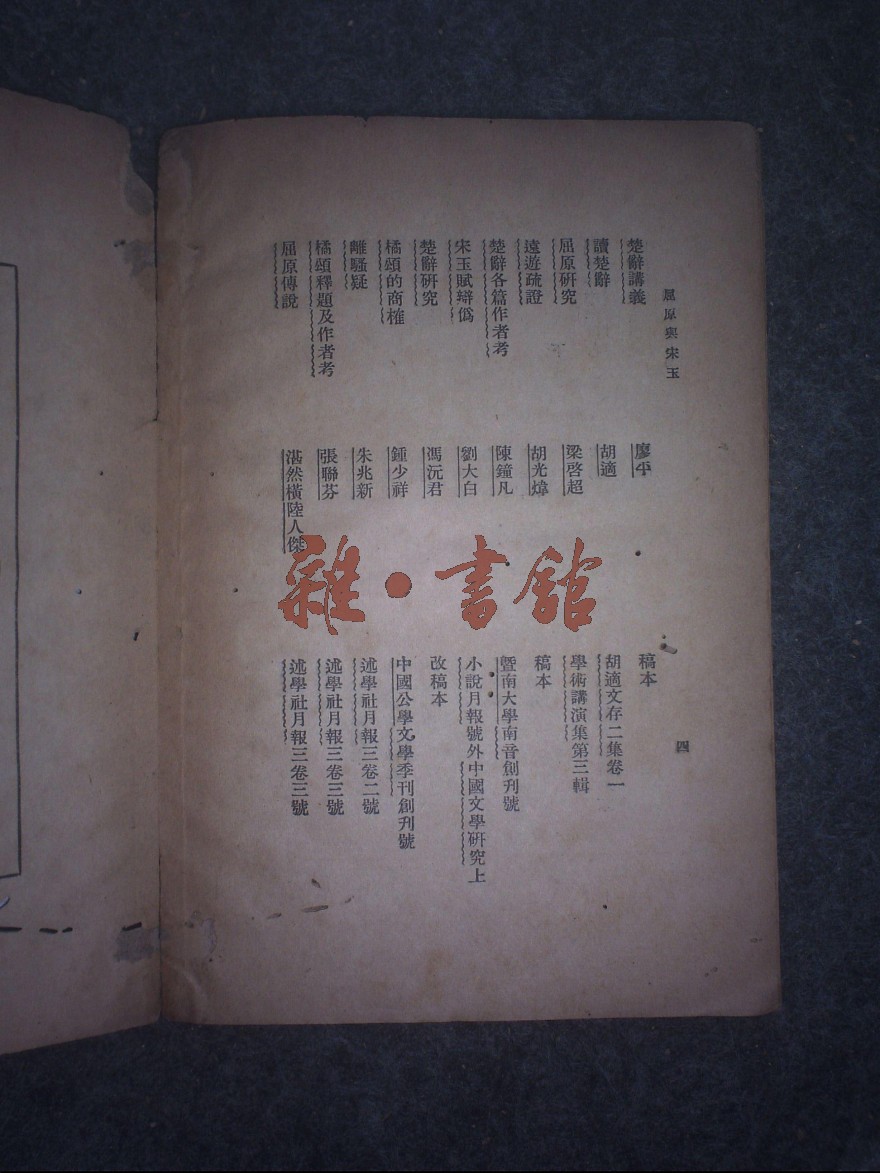 屈原與宋玉 四
楚辭講義 廖平 稿本
讀楚辭 胡適 胡適文存二集卷一
屈原研究 梁啓超 學術講演集第三輯
遠遊疏證 胡光煒 稿本
楚辭各篇作者考 陳鐘凡 暨南大學南音創刊號
宋玉賦辯僞 劉大白 小說月報號外中國文學研究上
楚辭研究 馮沅君 改稿本
橘頌的商榷 鍾少祥 中國公學文學季刊創刊號
離騷疑 朱兆新 述學社月報三卷二號
橘頌釋題及作者考 張聯芬 述學社月報三卷三號
屈原傳說 湛然橫陸人傑 述學社月報三卷三號
雜·書館